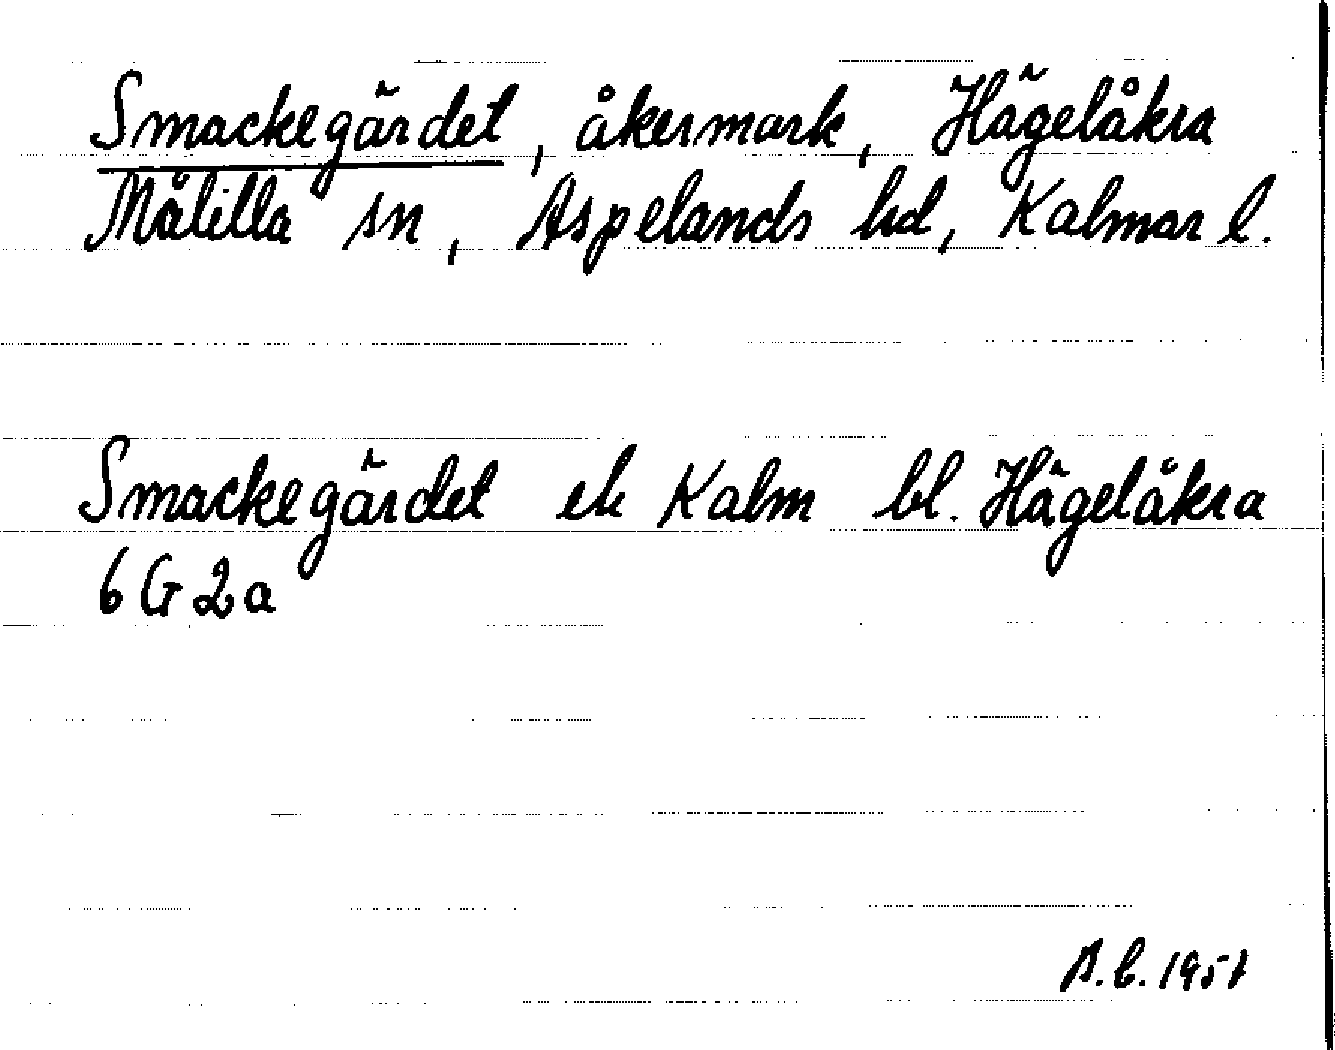 Smackegärdet, åkermark, Hägelåkra
Målilla sn, Aspelands hd, Kalmar l.
Smackegärdet ek Kalm bl. Hägelåkra
6 G 2 a
A.C. 1957